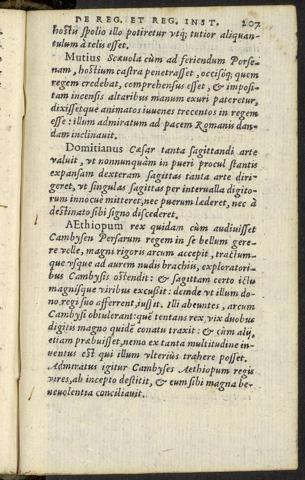 DE REG. ET REG. INST. 207
hostiũ spolio illo potiretur vtq; tutior aliquan-
tulum à telis esset.
Mutius Scæuola cùm ad feriendum Porse-
nam, hostium castra penetrasset, occisoq; quem
regem credebat, comprehensus esset, & imposi-
tam incensis altaribus manum exuri pateretur,
dixissetque animatos iuuenes trecentos in regem
esse: illum admiratum ad pacem Romanis dan-
dam inclinauit.
Domitianus Cæsar tanta sagittandi arte
valuit, vt nonnunquàm in pueri procul stantis
expansam dexteram sagittas tanta arte diri-
geret, vt singulas sagittas per interualla digito-
rum innocuè mitteret, nec puerum lederet, nec à
destinato sibi signo discederet.
AEthiopum rex quidam cùm audiuisset
Cambysen Persarum regem in se bellum gere-
re velle, magni rigoris arcum accepit, tractum-
que vsque ad aurem nudis brachiis, exploratori-
bus Cambysis ostendit: & sagittam certo ictu
magnisque viribus excussit: deinde vt illum do-
no regi suo afferrent, iussit. Illi abeuntes, arcum
Cambysi obtulerant: quẽ tentans rex, vix duobus
digitis magno quidẽ conatu traxit: & cùm alij
etiam præbuisset, nemo ex tanta multitudine in-
uentus est qui illum vlteriùs trahere posset.
Admiratus igitur Cambyses Aethiopum regis
vires, ab incepto destitit, & eum sibi magna be-
neuolentia conciliauit.